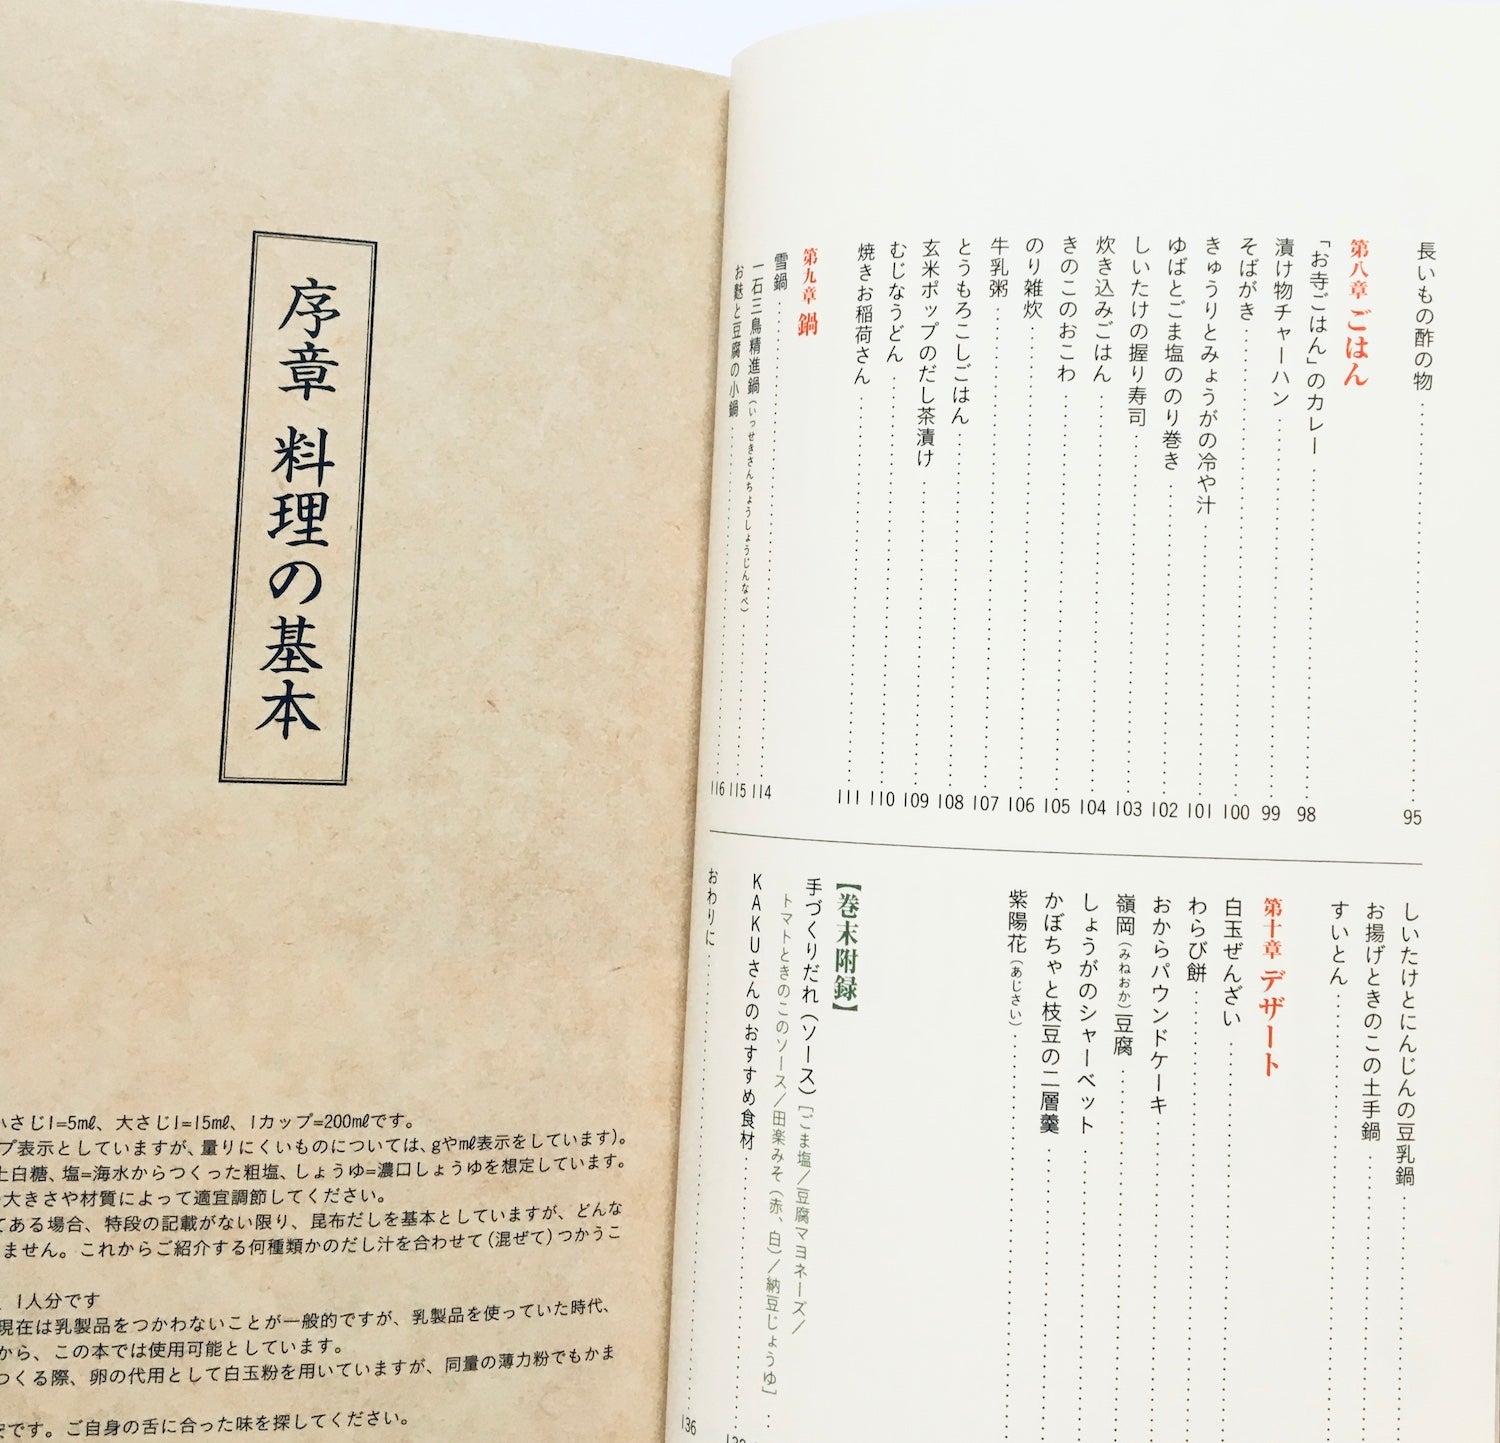 長いもの酢の物 95
第八章 ごはん
「お寺ごはん」のカレー 98
漬け物チャーハン 99
そばがき 100
きゅうりとみょうがの冷や汁 101
ゆばとごま塩ののり巻き 102
しいたけの握り寿司 103
炊き込みごはん 104
きのこのおこわ 105
のり雑炊 106
牛乳粥 107
とうもろこしごはん 108
玄米ポップのだし茶漬け 109
むじなうどん 110
焼きお稲荷さん 111
第九章 鍋
雪鍋 114
一石三鳥精進鍋(いっせきさんちょうしょうじんなべ) 115
お麩と豆腐の小鍋 116
しいたけとにんじんの豆乳鍋
お揚げときのこの土手鍋
すいとん
第十章 デザート
白玉ぜんざい
わらび餅
おからパウンドケーキ
嶺岡(みねおか)豆腐
しょうがのシャーベット
かぼちゃと枝豆の二層羹
紫陽花(あじさい)
【巻末附録】
手づくりだれ(ソース)[ごま塩/豆腐マヨネーズ/
トマトときのこのソース/田楽みそ(赤、白)/納豆じょうゆ]
KAKUさんのおすすめ食材
おわりに 136
序章 料理の基本
小さじ1=5ml、大さじ1=15ml、1カップ=200mlです。
プ表示としていますが、量りにくいものについては、gやml表示をしています)。
上白糖、塩=海水からつくった粗塩、しょうゆ=濃口しょうゆを想定しています。
大きさや材質によって適宜調節してください。
てある場合、特段の記載がない限り、昆布だしを基本としていますが、どんな
ません。これからご紹介する何種類かのだし汁を合わせて(混ぜて)つかうこ
、1人分です
現在は乳製品をつかわないことが一般的ですが、乳製品を使っていた時代、
から、この本では使用可能としています。
つくる際、卵の代用として白玉粉を用いていますが、同量の薄力粉でもかま
安です。ご自身の舌に合った味を探してください。